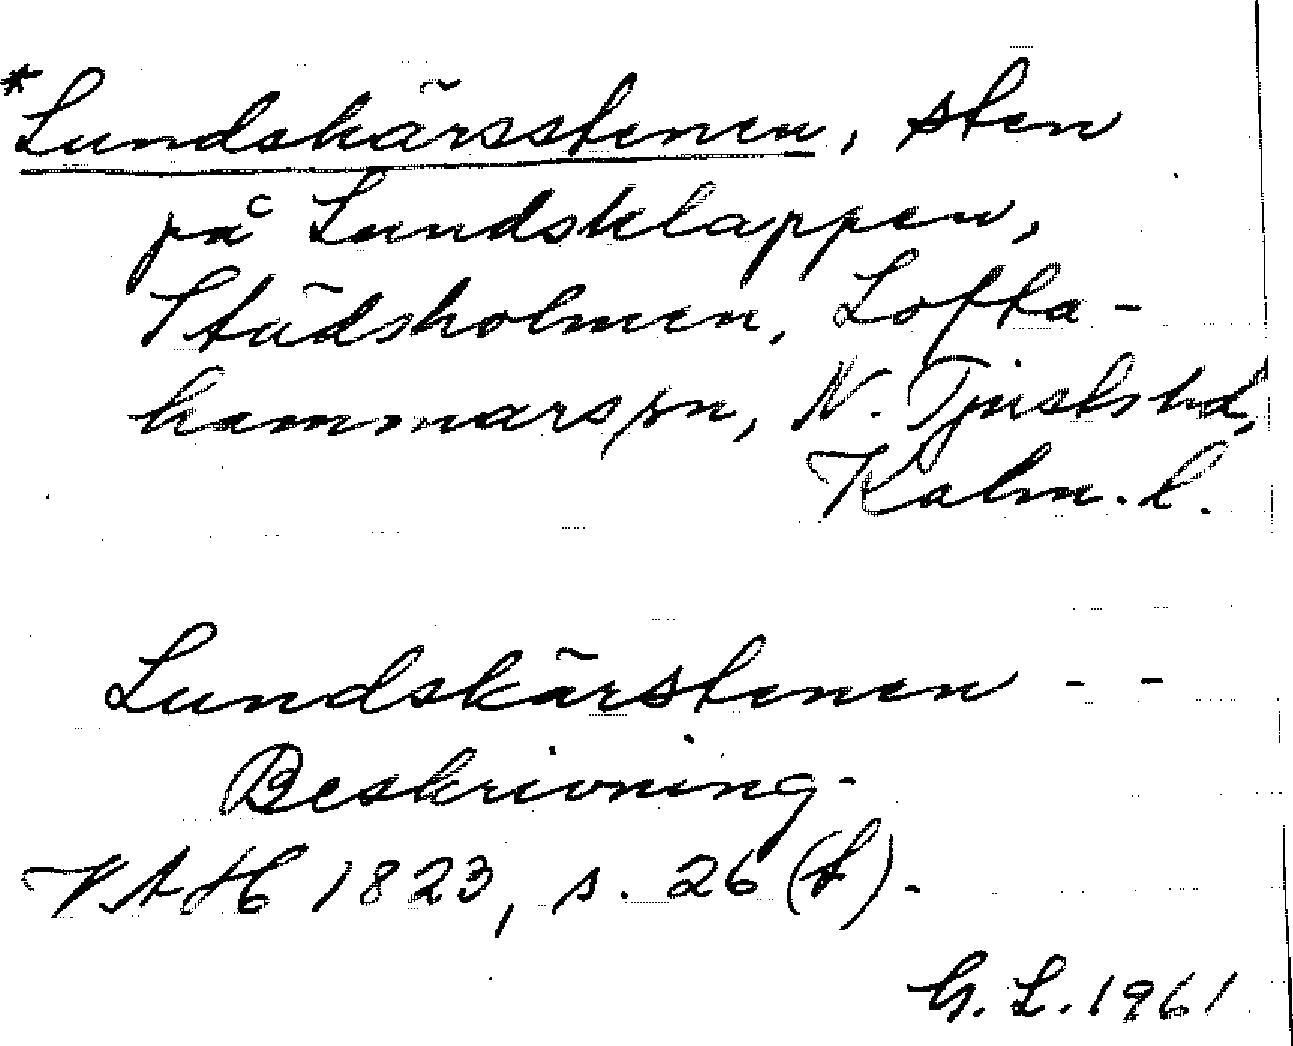 *Lundskärsstenen, sten
på Lundsklappen,
Städsholmen, Lofta-
hammars sn, N. Tjusts hd,
Kalm. l.
Lundskärstenen - -
Beskrivning.
VAH 1823, s. 26 (f).
G. L. 1961